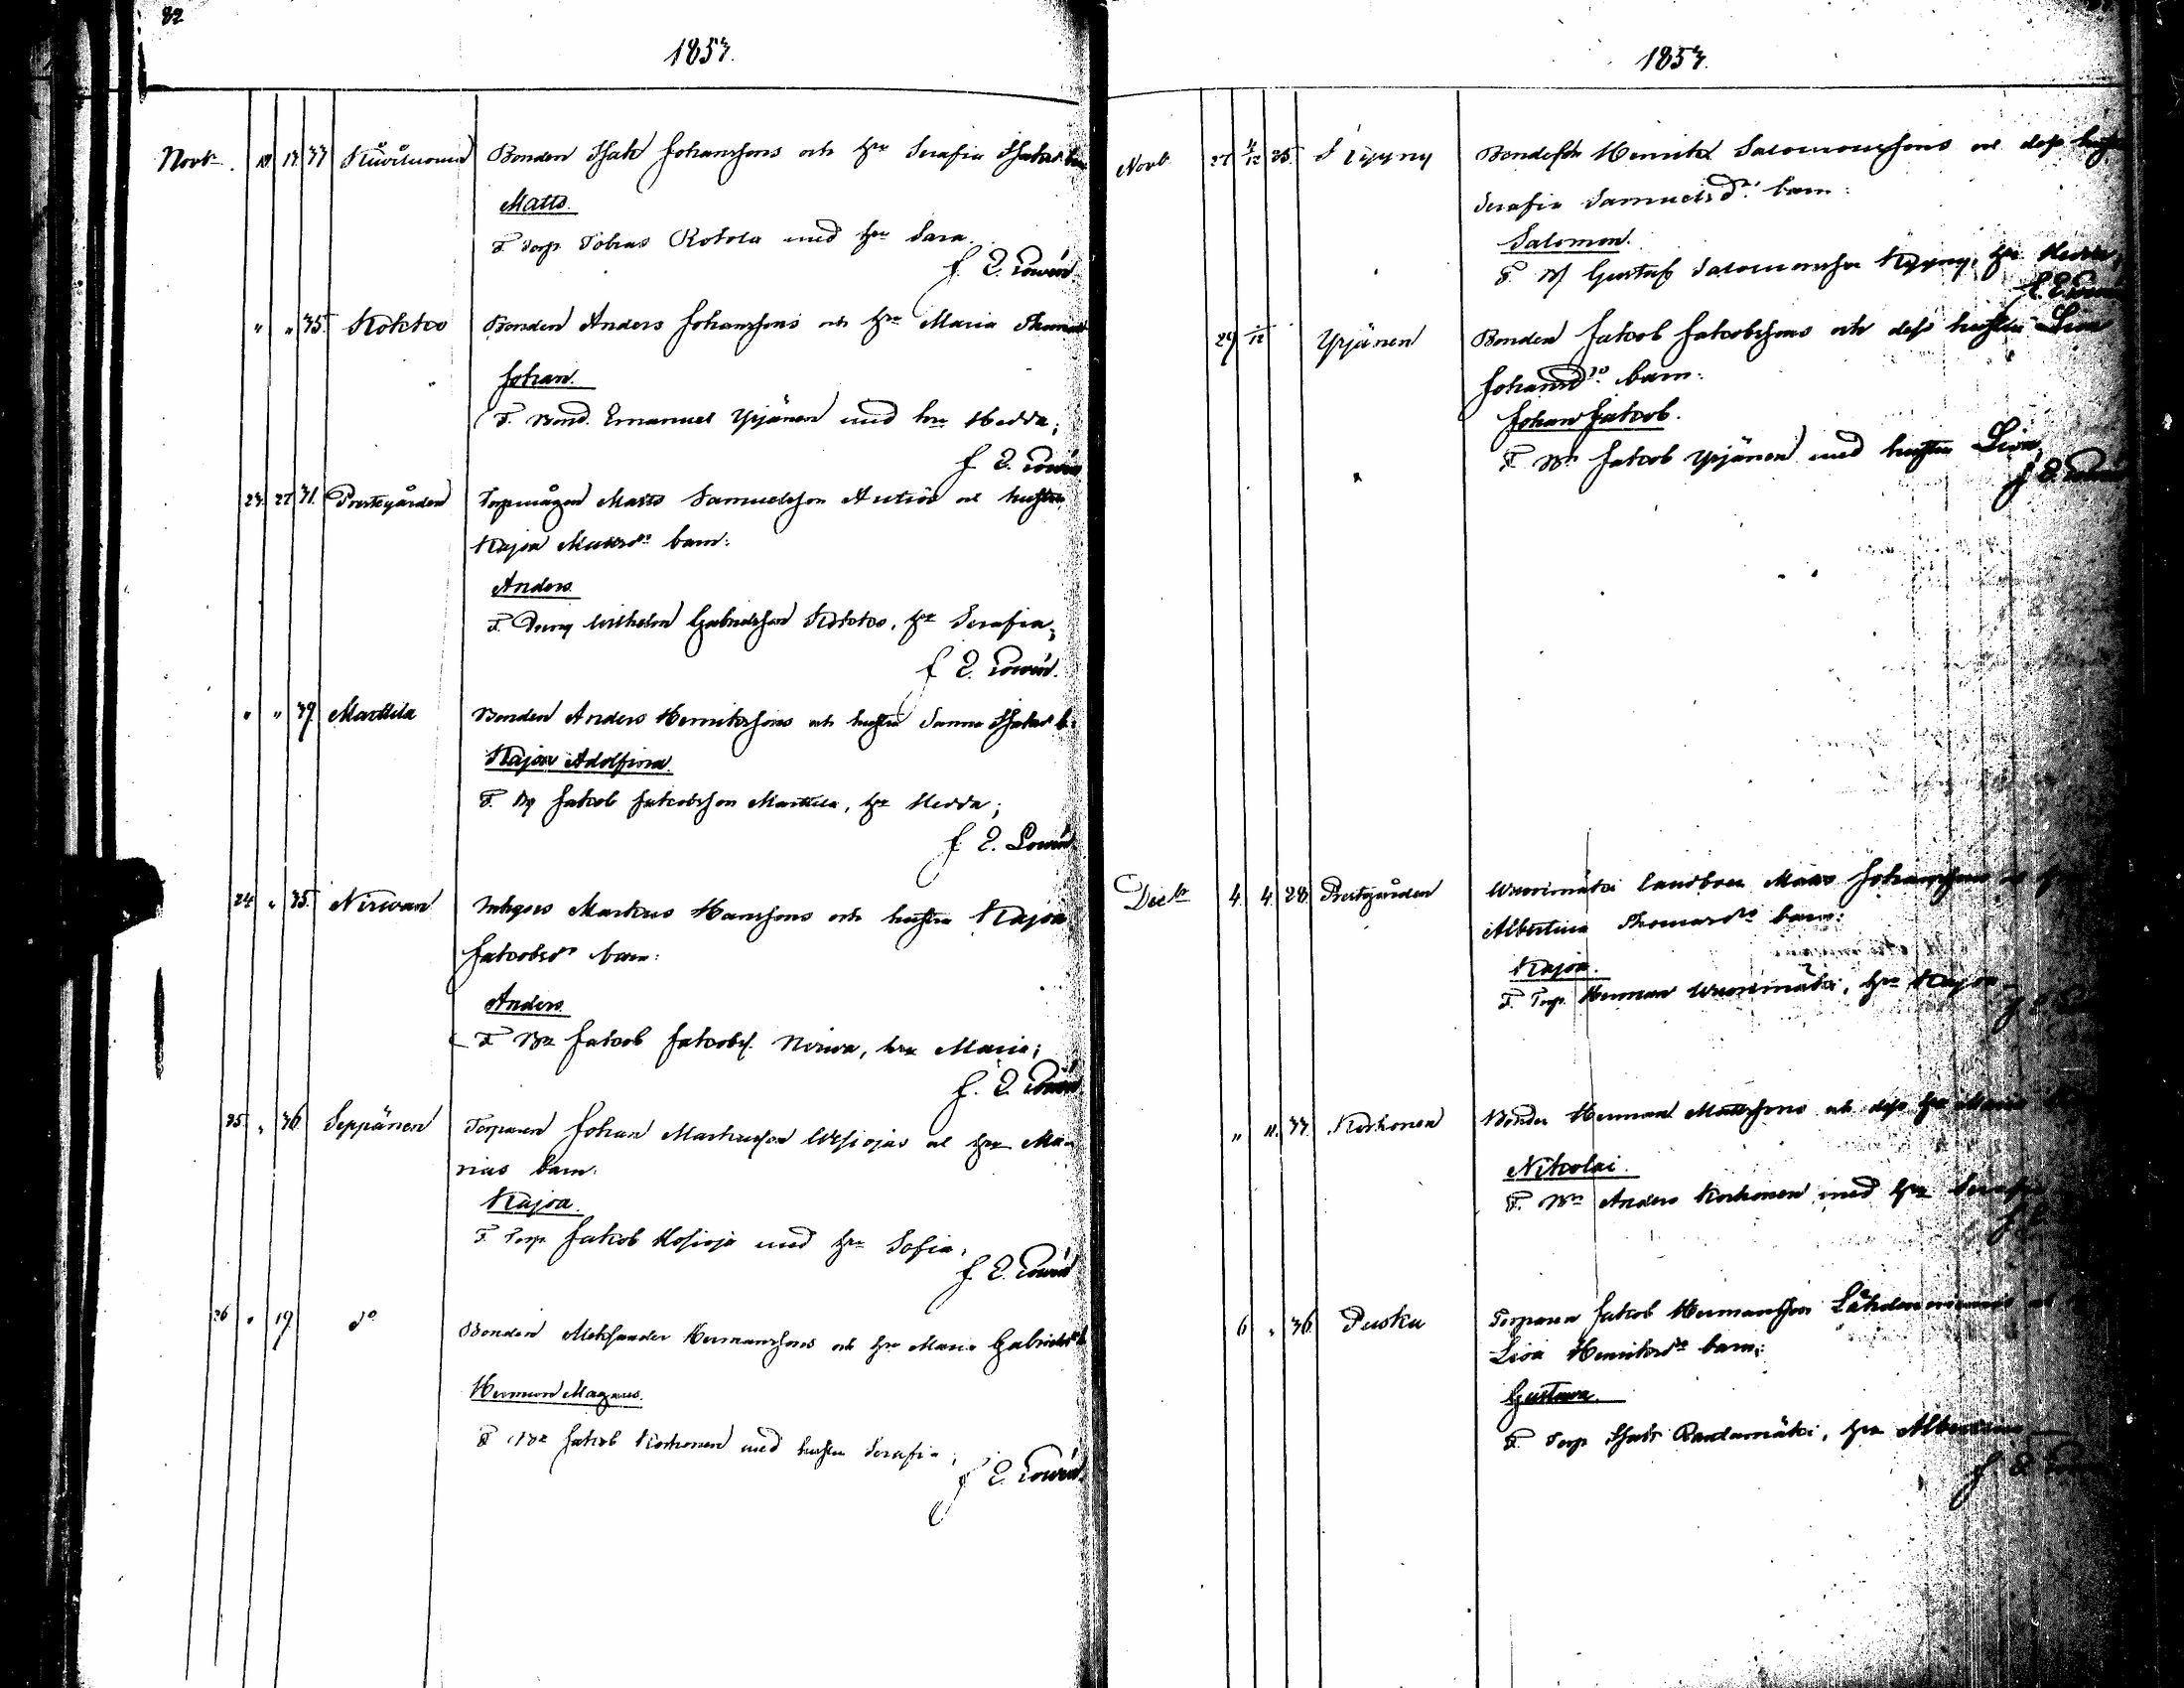 82
1857.
Novbr. 10 17 37 Bonden Isak Johanssons och hru Serafia Isaksd. barn
Matts.
F. Torp. Tobias Kotola med hru Sara.
J. E. Lowén.
" " 35. Kokko Bonden Anders Johanssons och hru Maria
Johan.
F. Bond. Emanuel Yrjänen med hru Hedda;
J. E. Lowén
23. 22 31. Prestgården Torpmågen Matts Samuelsson Autios och hustru
Kajsa Mattsdr barn:
Anders
F. Dreng Wilhelm Gabrielsson Kokko, hru Serafia;
J. E. Lowén.
" " 39. Marttila Bonden Anders Henrikssons och hustru Sanna Isaksd. b.
Kajsa Adolfina.
F. By Jakob Jakobsson Marttila, hru Hedda;
J. E. Lowén
24 " 35. Nirwan Inhyses Markus Hanssons och hustru Kajsa
Jakobsdr barn:
Anders
F. Br Jakob Jakobss. Nirwa, hru Maria;
J. E. Lowén
25 " 36 Seppänen Torparen Johan Markusson Wesiojas och hru Ma-
rias barn.
Kajsa.
F. Torp. Jakob med hru Sofia;
J. E. Lowén
26 " 19 do Bonden Alexander Hermanssons och hru Maria Gabrielsd. b.
Herman Magnus.
F. Br Jakob Korhonen med hustru Serafia;
J. E. Lowén.
1857.
Novb. 27 4/12 25. Bondeson Henrik Salomonssons och dess hustru
Serafia Samuelsdr barn:
Salomon.
F. Bd Gustaf Salomonsson hru Hedda;
J. E. Lowén
29 /12 Yrjänen Bonden Jakob Jakobssons och dess hustru Lisa
Johansdr barn:
Johan Jakob.
F. Bn Jakob Yrjänen med hustru Lisa,
J. E. Lowén
Decbr 4 4 28. Prestgården Wuorimäki landboen Matts Johanssons och hru
Albertina Thomasdr barn:
Kajsa.
F. Torp. Herman Wuorimäki, hru Kajsa
" 11. 37. Korhonen Bonden Herman Mattssons och dess hru Maria
Nikolai.
F. Bn Anders Korhonen med hru Serafia
6 " 36. Pusku Torparen Jakob Hermansson
Lisa Henriksdr barn:
Gustava.
F. Torp Isak Rautamäki, hru Albertina
J. E.